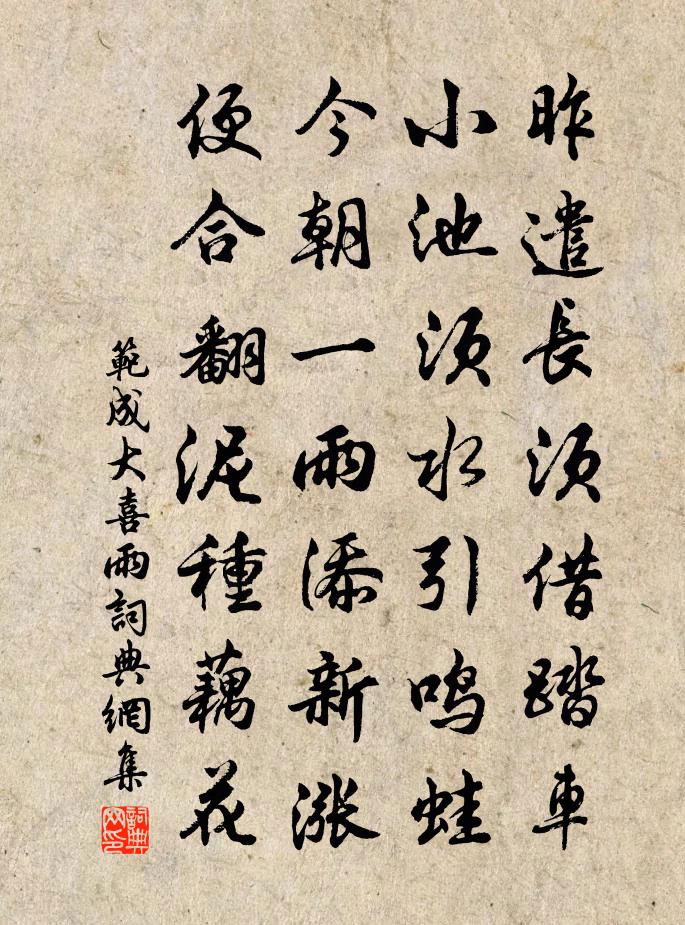 昨遣長須借踏車
小池須水引鳴蛙
今朝一雨添新漲
便合翻泥種藕花
範成大喜雨詞典網集
詞典網印